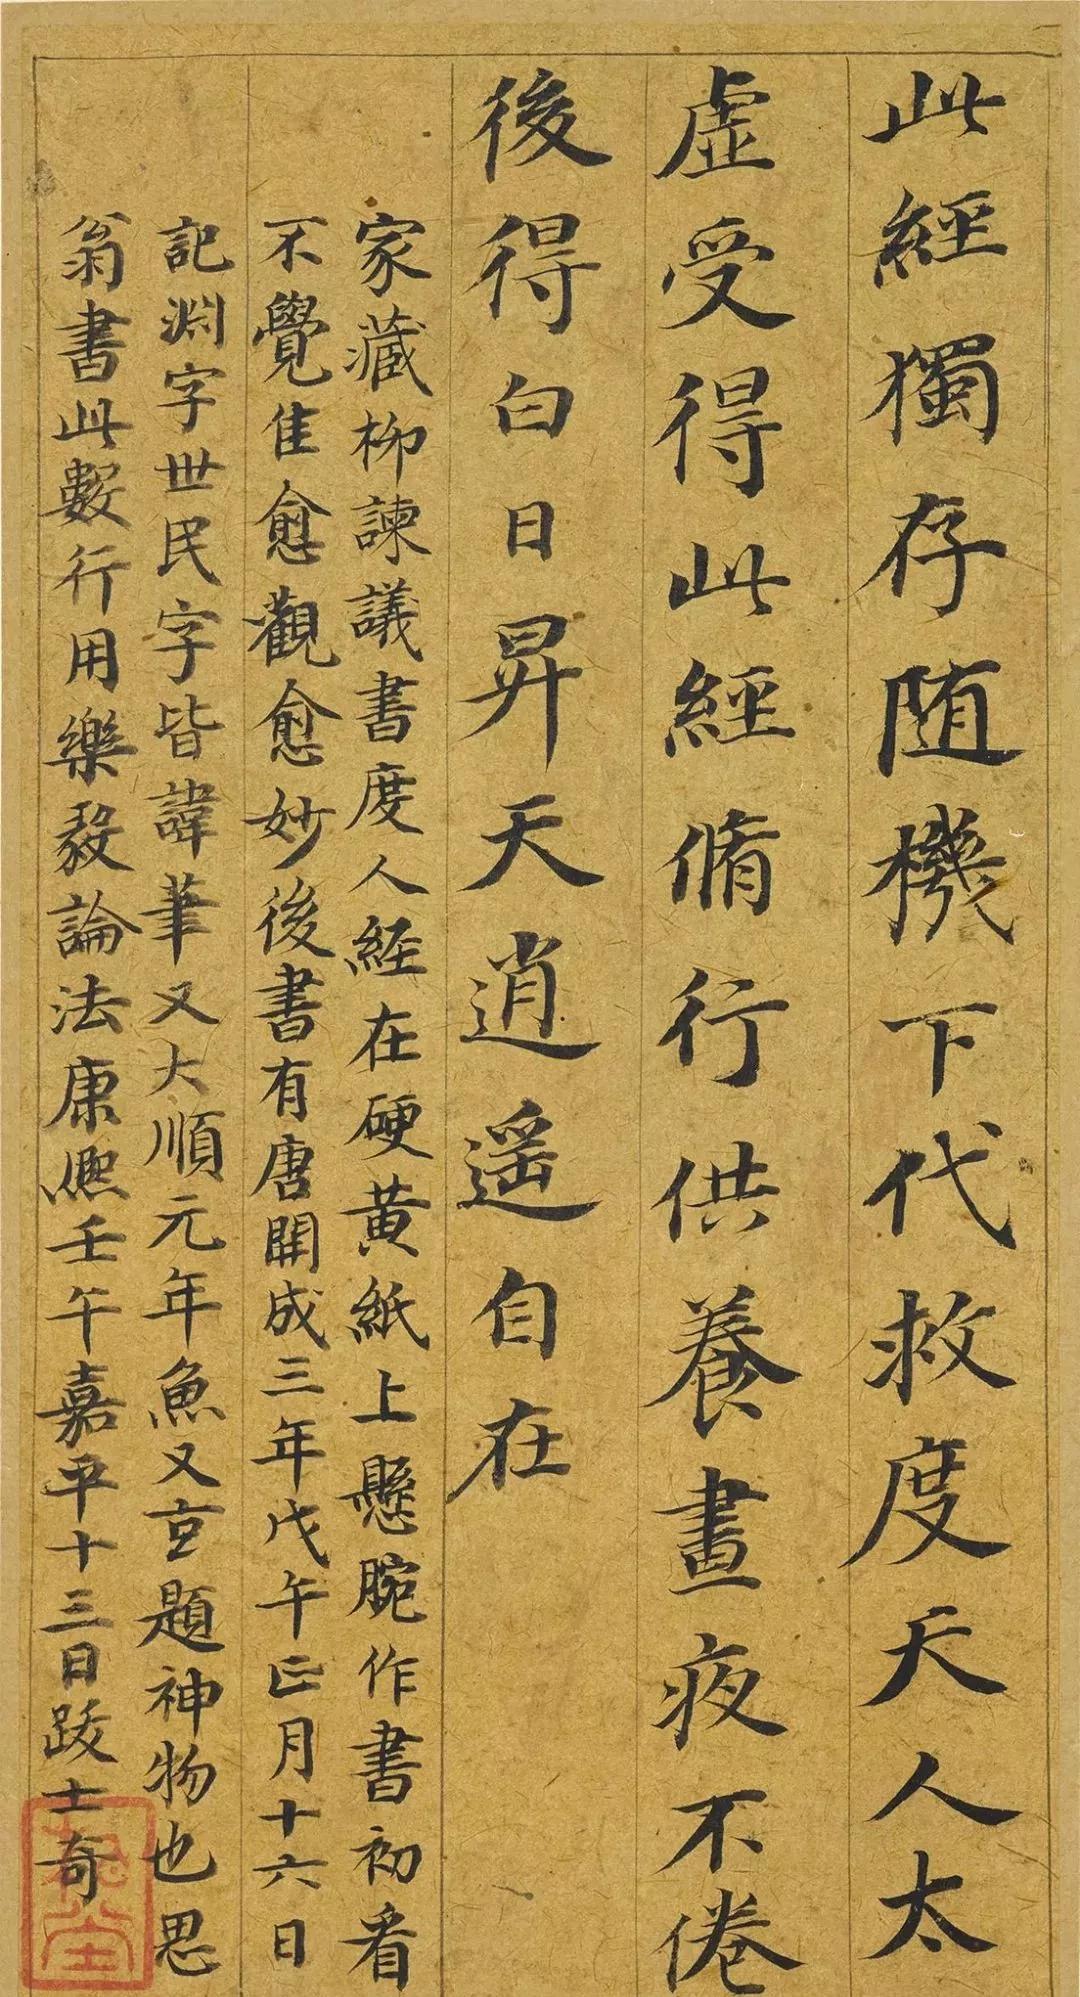 此經獨存随機下代救度天人太
虛受得此經脩行供養晝夜不倦
後得白日昇天逍遥自在
家藏柳諫議書度人經在硬黄紙上懸腕作書初看
不覺隹愈觀愈妙後書有唐開成三年戊午正月十六日
記淵字世民字皆諱筆又大順元年魚又玄題神物也思
翁書此數行用樂毅論法康熙壬午嘉平十三日跋士奇